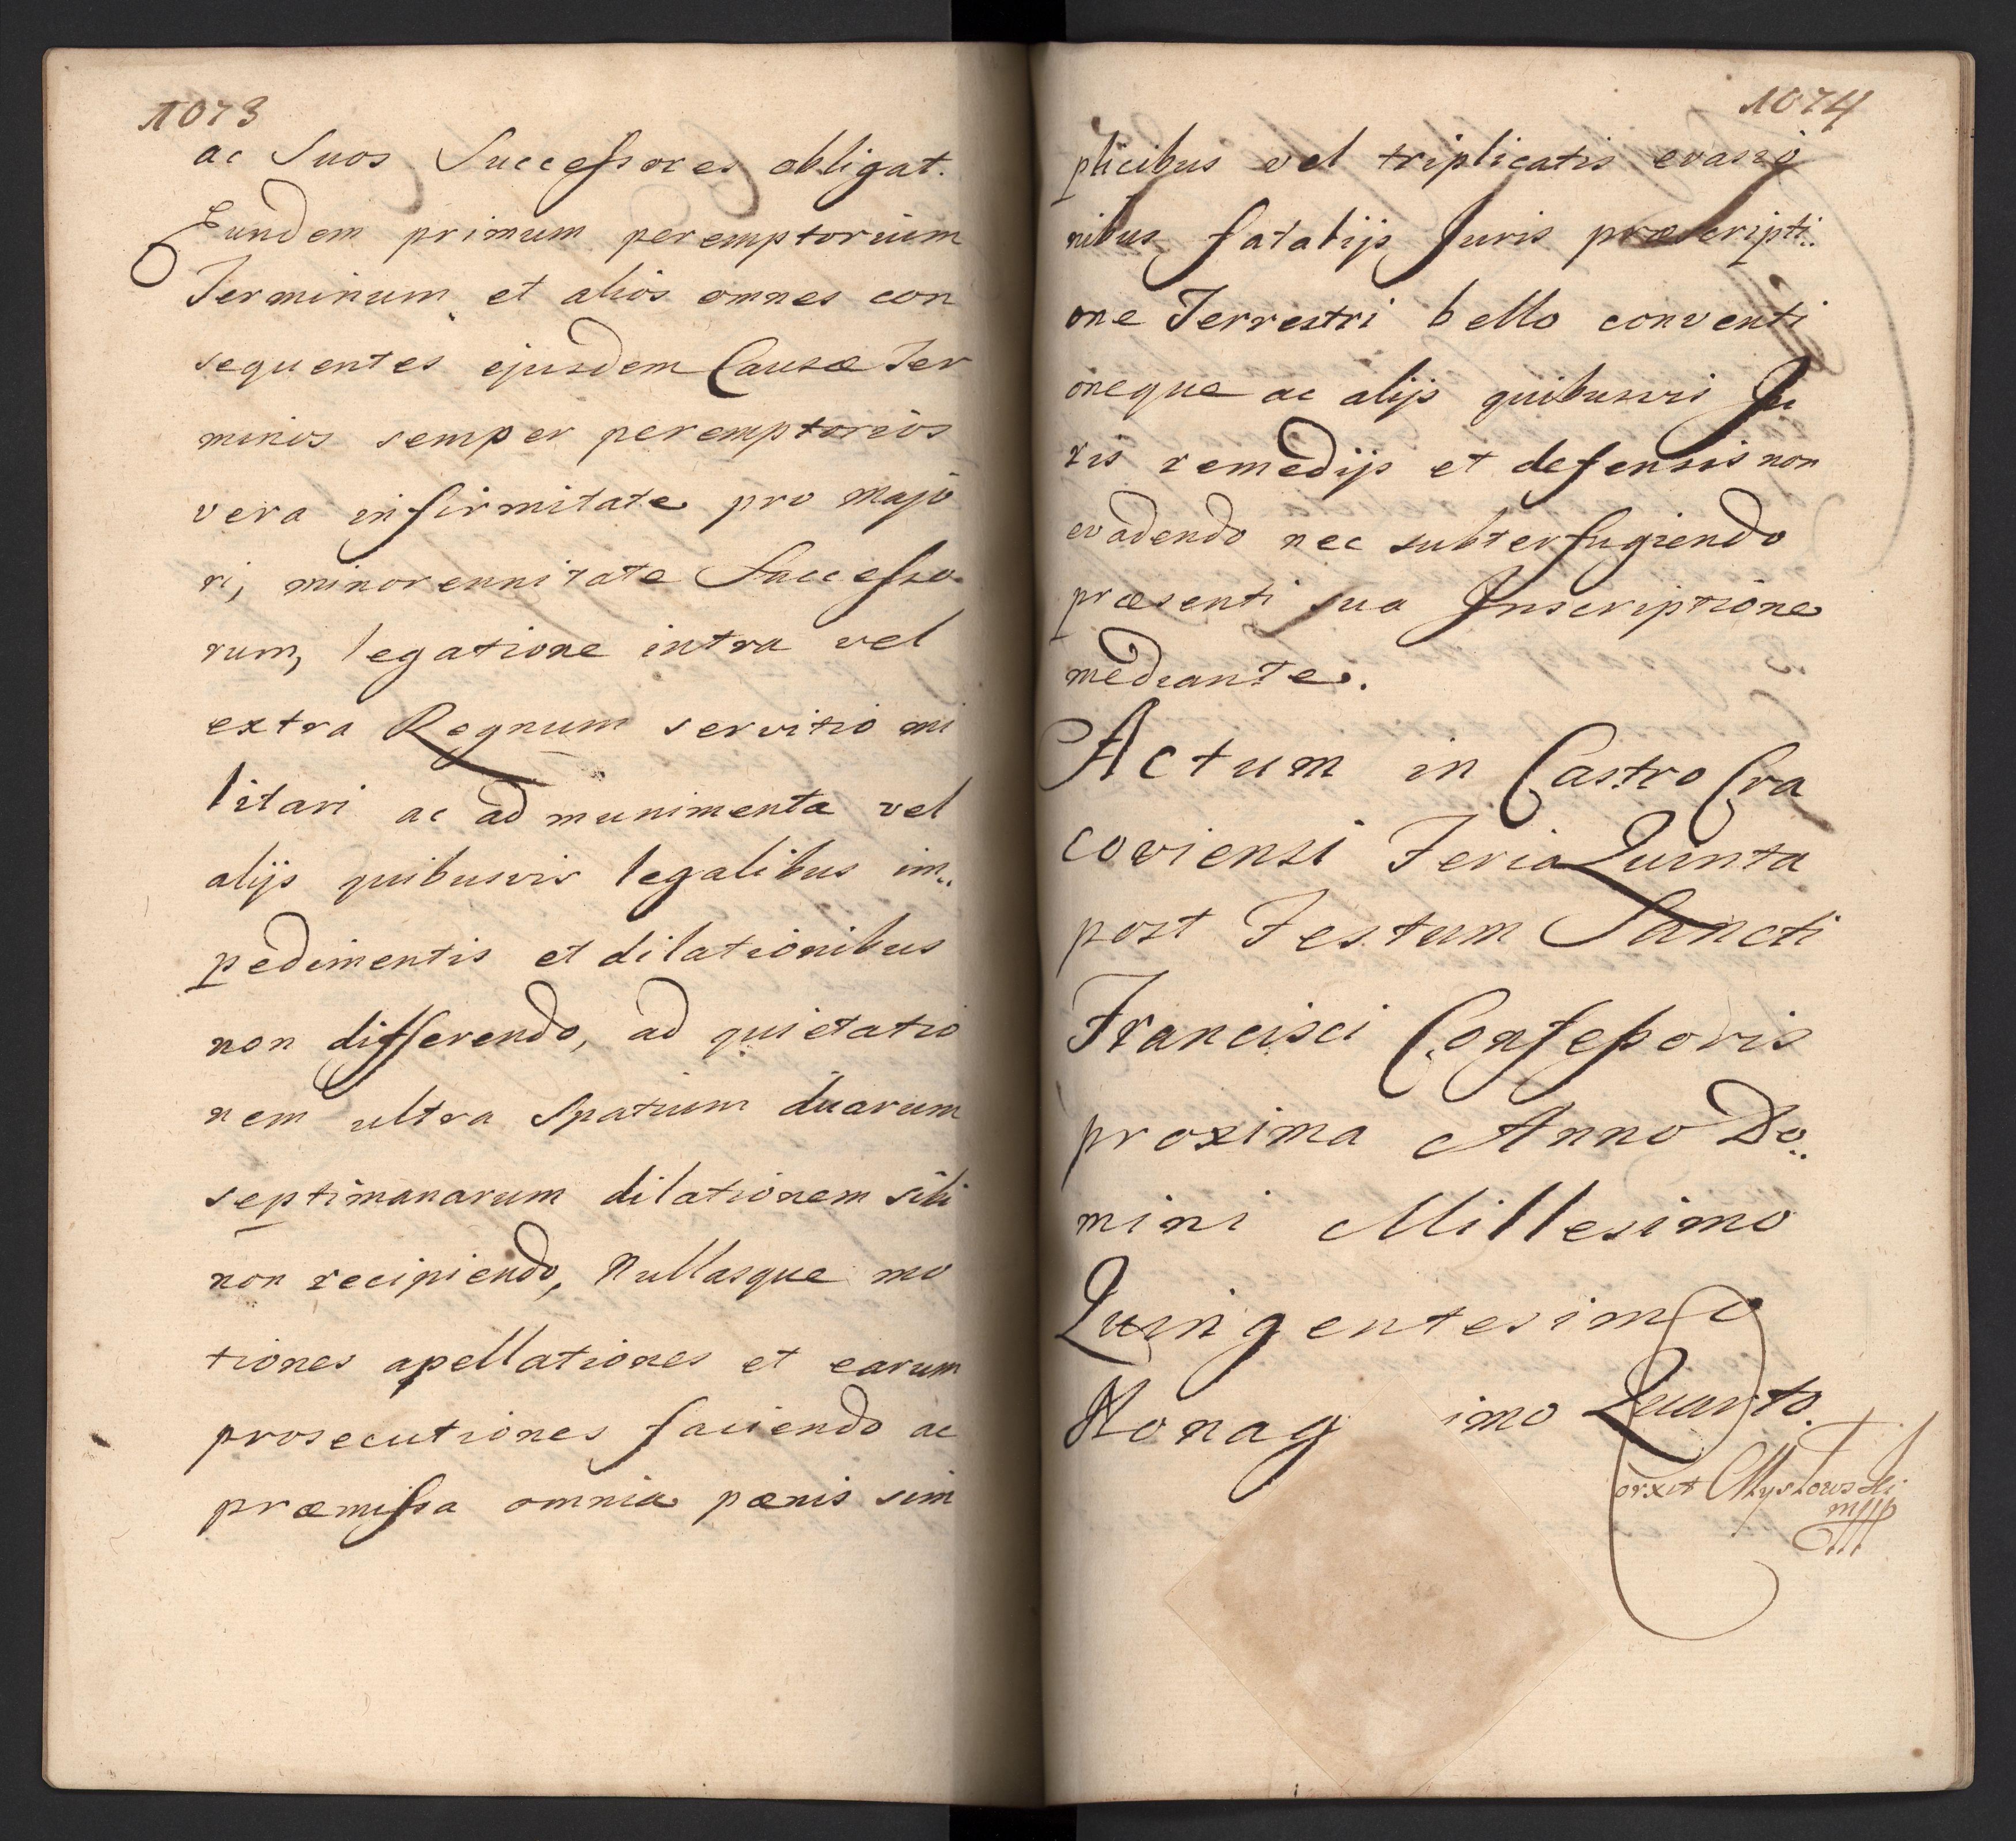 1073
ac Suos Successores obligat.
Eundem primum peremptorium
Terminum et alios omnes con
sequentes ejusdem Causæ Ter
minos semper peremptorios
vera infirmitate pro majo
ri, minorennitate Successo
rum, legatione intra vel
extra Regnum servitio mi
litari ac ad munimenta vel
alijs quibusvis legalibus im..
pedimentis et dilationibus
non differendo, ad quietatio
nem ultra Spatium duarum
septimanarum dilationem sibi
non recipiendo, Nullasque mo
tiones apellationes et earum
prosecutiones faciendo ac
præmissa omnia pœnis sim
1074
plicibus vel triplicatis evasio
nibus fatalijs Juris præscripti..
one Terrestri bello conventi
oneque ac alijs quibusvis Ju
ris remedijs et defensis non
evadendo nec subterfugiendo
præsenti sua Inscriptione
mediante.
Actum in Castro Cra
coviensi Feria Quinta
post Festum Sancti
Francisci Confessoris
proxima Anno Do..
mini Millesimo
Quingentesimo
Nonag imo Quarto.